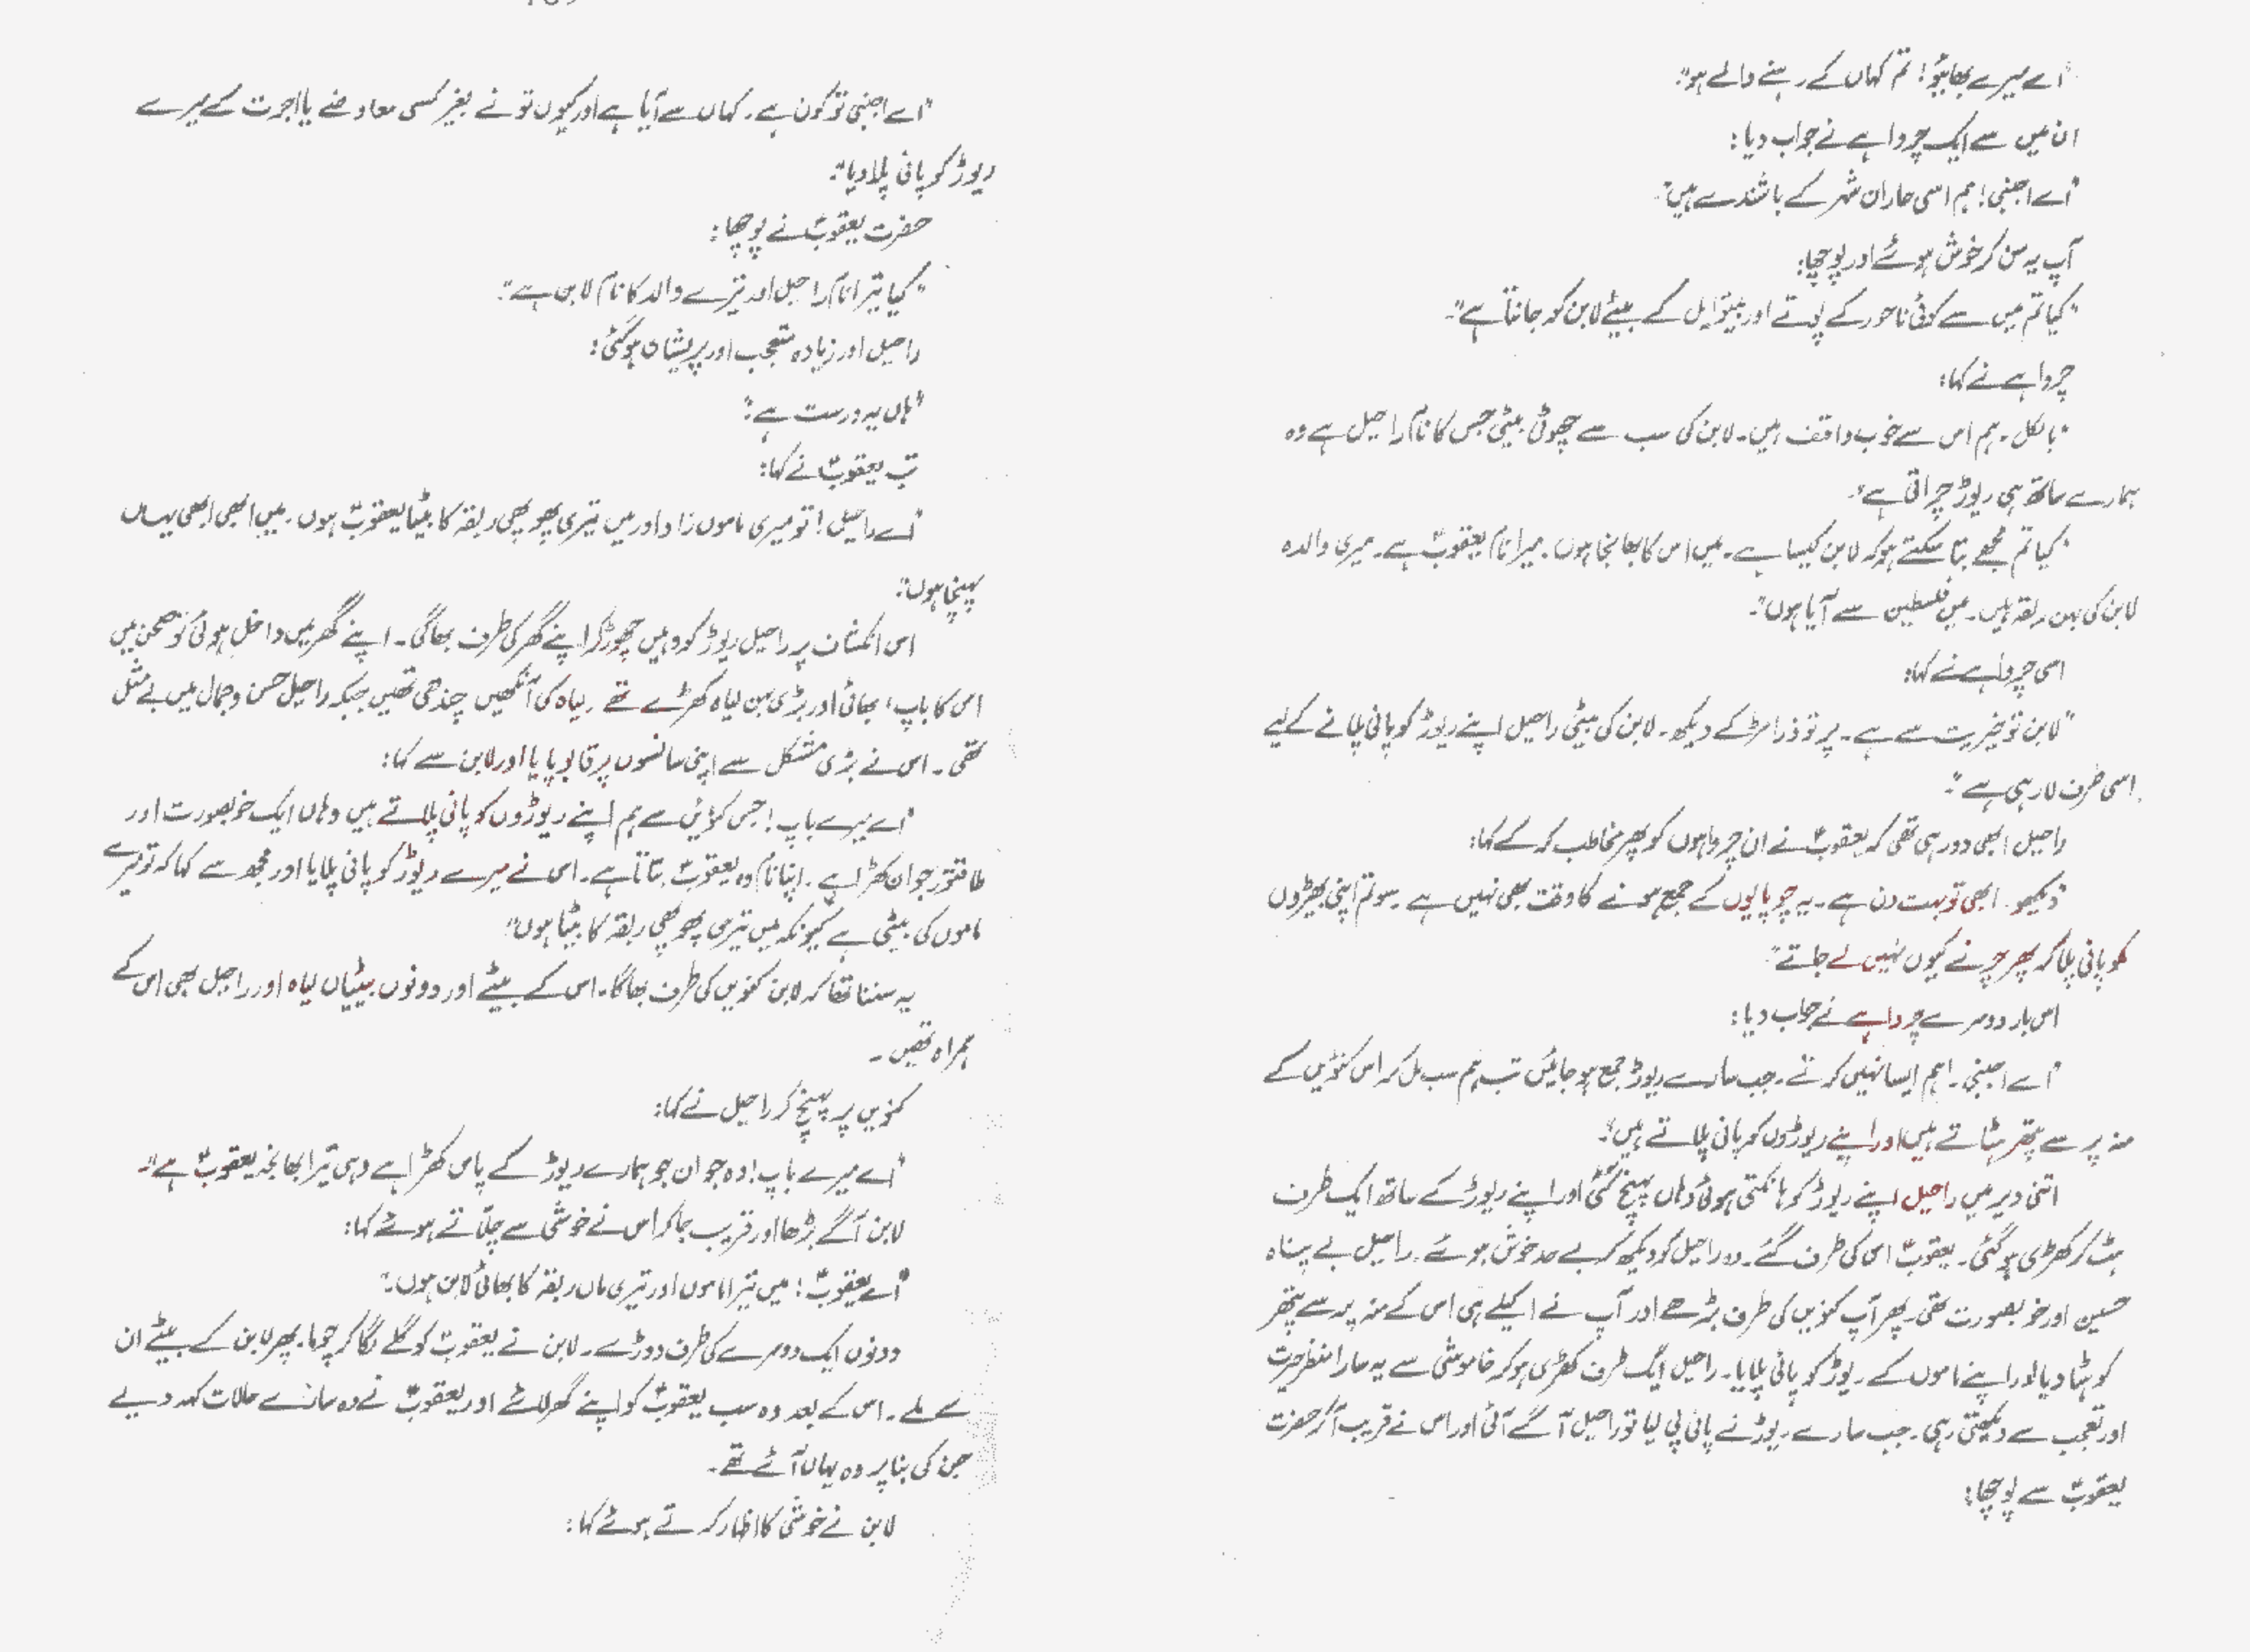 "اے میرے بھائیو! تم کہاں کے رہنے والے ہو"۔
ان میں سے ایک چرواہے نے جواب دیا:
"اے اجنبی! ہم اسی حاران شہر کے باشندے ہیں"۔
آپ یہ سن کر خوش ہوئے اور پوچھا:
"کیا تم میں سے کوئی ناحور کے پوتے اور بیتوایل کے بیٹے لابن کو جانتا ہے"۔
چرواہے نے کہا:
"بالکل۔ ہم اس سے خوب واقف ہیں۔ لابن کی سب سے چھوٹی بیٹی جس کا نام راحیل ہے وہ
ہمارے ساتھ ہی ریوڑ چراتی ہے"۔
"کیا تم مجھے بتا سکتے ہو کہ لابن کیسا ہے۔ میں اس کا بھانجا ہوں۔ میرا نام یعقوبؑ ہے۔ میری والدہ
لابن کی بہن ربقہ ہیں۔ میں فلسطین سے آیا ہوں"۔
اسی چرواہے نے کہا:
"لابن تو خیریت سے ہے۔ پر تو ذرا مڑ کے دیکھ۔ لابن کی بیٹی راحیل اپنے ریوڑ کو پانی پلانے کے لیے
اسی طرف لا رہی ہے"۔
راحیل ابھی دور ہی تھی کہ یعقوبؑ نے ان چرواہوں کو پھر مخاطب کر کے کہا:
"دیکھو۔ ابھی تو بہت دن ہے۔ یہ چوپایوں کے جمع ہونے کا وقت بھی نہیں ہے۔ سو تم اپنی بھیڑوں
کو پانی پلا کر پھر چرنے کیوں نہیں لے جاتے"۔
اس بار دوسرے چرواہے نے جواب دیا:
"اے اجنبی۔ ہم ایسا نہیں کرتے۔ جب سارے ریوڑ جمع ہو جائیں تب ہم سب مل کر اس کنوئیں کے
منہ پر سے پتھر ہٹاتے ہیں اور اپنے ریوڑوں کو پانی پلاتے ہیں"۔
اتنی دیر میں راحیل اپنے ریوڑ کو ہانکتی ہوئی وہاں پہنچ گئی اور اپنے ریوڑ کے ساتھ ایک طرف
ہٹ کر کھڑی ہو گئی۔ یعقوبؑ اس کی طرف گئے۔ وہ راحیل کو دیکھ کر بے حد خوش ہوئے۔ راحیل بے پناہ
حسین اور خوبصورت تھی۔ پھر آپ کنویں کی طرف بڑھے اور آپ نے اکیلے ہی اس کے منہ پر سے پتھر
کو ہٹا دیا اور اپنے ماموں کے ریوڑ کو پانی پلایا۔ راحیل ایک طرف کھڑی ہو کر خاموشی سے یہ سارا منظر حیرت
اور تعجب سے دیکھتی رہی۔ جب سارے ریوڑ نے پانی پی لیا تو راحیل آگے آئی اور اس نے قریب آکر حضرت
یعقوبؑ سے پوچھا:
"اے اجنبی تو کون ہے۔ کہاں سے آیا ہے اور کیوں تو نے بغیر کسی معاوضے یا اجرت کے میرے
ریوڑ کو پانی پلا دیا"۔
حضرت یعقوبؑ نے پوچھا:
"کیا تیرا نام راحیل اور تیرے والد کا نام لابن ہے"۔
راحیل اور زیادہ متعجب اور پریشان ہو گئی:
"ہاں یہ درست ہے"۔
تب یعقوبؑ نے کہا:
"اے راحیل! تو میری ماموں زاد اور میں تیری پھوپھی ربقہ کا بیٹا یعقوبؑ ہوں۔ میں ابھی ابھی یہاں
پہنچا ہوں"۔
اس انکشاف پر راحیل ریوڑ کو وہیں چھوڑ کر اپنے گھر کی طرف بھاگی۔ اپنے گھر میں داخل ہوئی تو صحن میں
اس کا باپ، بھائی اور بڑی بہن لیاہ کھڑے تھے۔ لیاہ کی آنکھیں چندھی تھیں جبکہ راحیل حسن و جمال میں بے مثل
تھی۔ اس نے بڑی مشکل سے اپنی سانسوں پر قابو پایا اور لابن سے کہا:
"اے میرے باپ! جس کنوئیں سے ہم اپنے ریوڑوں کو پانی پلاتے ہیں وہاں ایک خوبصورت اور
طاقتور جوان کھڑا ہے۔ اپنا نام وہ یعقوبؑ بتاتا ہے۔ اس نے میرے ریوڑ کو پانی پلایا اور مجھ سے کہا کہ تو میرے
ماموں کی بیٹی ہے کیونکہ میں تیری پھوپھی ربقہ کا بیٹا ہوں"۔
یہ سننا تھا کہ لابن کنویں کی طرف بھاگا۔ اس کے بیٹے اور دونوں بیٹیاں لیاہ اور راحیل بھی اس کے
ہمراہ تھیں۔
کنویں پر پہنچ کر راحیل نے کہا:
"اے میرے باپ! وہ جوان جو ہمارے ریوڑ کے پاس کھڑا ہے وہی تیرا بھانجہ یعقوبؑ ہے"۔
لابن آگے بڑھا اور قریب جا کر اس نے خوشی سے چلّاتے ہوئے کہا:
"اے یعقوبؑ! میں تیرا ماموں اور تیری ماں ربقہ کا بھائی لابن ہوں۔"
دونوں ایک دوسرے کی طرف دوڑے۔ لابن نے یعقوبؑ کو گلے لگا کر چوما۔ پھر لابن کے بیٹے ان
سے ملے۔ اس کے بعد وہ سب یعقوبؑ کو اپنے گھر لائے اور یعقوبؑ نے وہ سارے حالات کہہ دیے
جن کی بنا پر وہ یہاں آئے تھے۔
لابن نے خوشی کا اظہار کرتے ہوئے کہا: